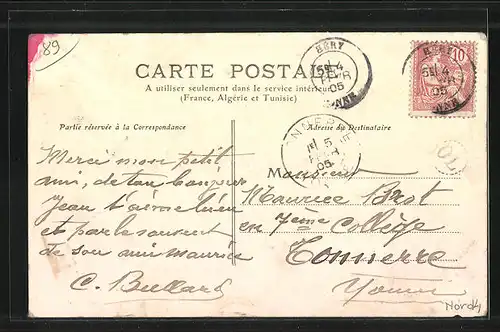 89
CARTE POSTALE
A utiliser seulement dans le service intérieur
(France, Algérie et Tunisie)
Partie réservée à la Correspondance
Adresse du Destinataire
HÉRY
4
05
YONNE
10
5
05
Merci mon petit
ami, de ton bonjour
Jean t'aime bien
et parle souvent
de son ami maurice
C. Bullard
Monsieur
Maurice Brot
en 7ème Collège
Tonnerre
Yonne
Nord4